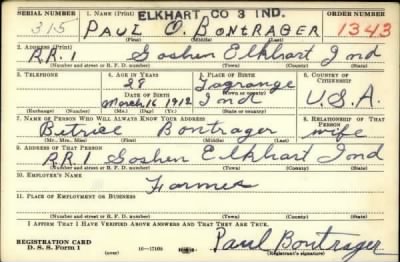 ELKHART CO 3 IND.
SERIAL NUMBER 1. NAME (Print) ORDER NUMBER
315 PAUL O BONTRAGER 1343
(First) (Middle) (Last)
2. ADDRESS (Print)
R.R. 1 Goshen Elkhart Ind
(Number and street or R. F. D. number) (Town) (County) (State)
3. TELEPHONE 4. AGE IN YEARS 5. PLACE OF BIRTH 6. COUNTRY OF CITIZENSHIP
28 Lagrange
DATE OF BIRTH (Town or county)
March 16 1912 Ind U.S.A.
(Exchange) (Number) (Mo.) (Day) (Yr.) (State or country)
7. NAME OF PERSON WHO WILL ALWAYS KNOW YOUR ADDRESS 8. RELATIONSHIP OF THAT PERSON
Bitrice Bontrager wife
(Mr., Mrs., Miss) (First) (Middle) (Last)
9. ADDRESS OF THAT PERSON
R.R. 1 Goshen Elkhart Ind
(Number and street or R. F. D. number) (Town) (County) (State)
10. EMPLOYER'S NAME
Farmer
11. PLACE OF EMPLOYMENT OR BUSINESS
(Number and street or R. F. D. number) (Town) (County) (State)
I AFFIRM THAT I HAVE VERIFIED ABOVE ANSWERS AND THAT THEY ARE TRUE.
REGISTRATION CARD
D. S. S. Form 1 16—17105 Paul Bontrager
(Registrant's signature)